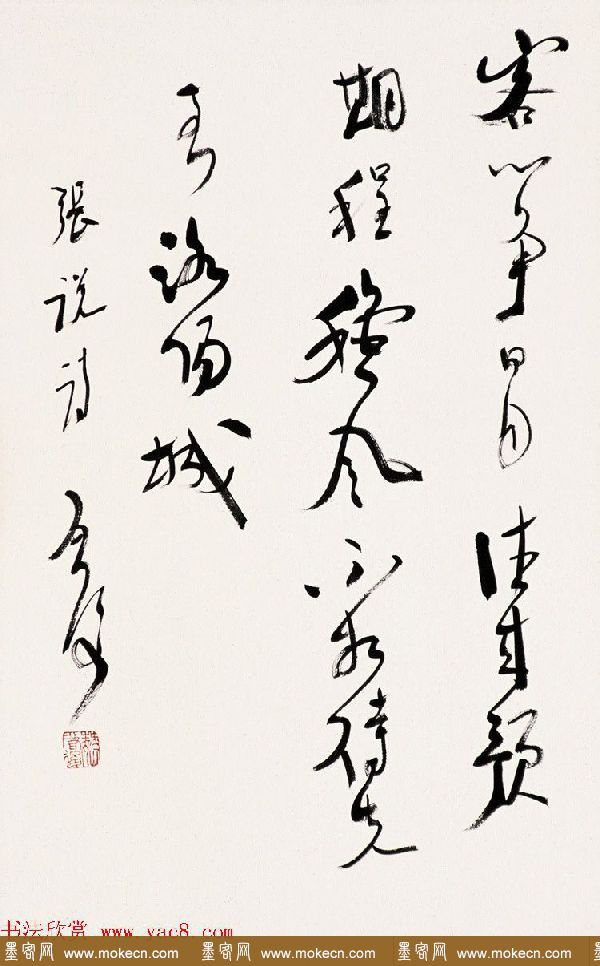 客心爭日月往來預
期程穐風不相待先
至洛陽城
張說詩
书法欣赏 www.yac8.com
墨客网 www.mokecn.com 墨客网 www.mokecn.com 墨客网 www.mokecn.com